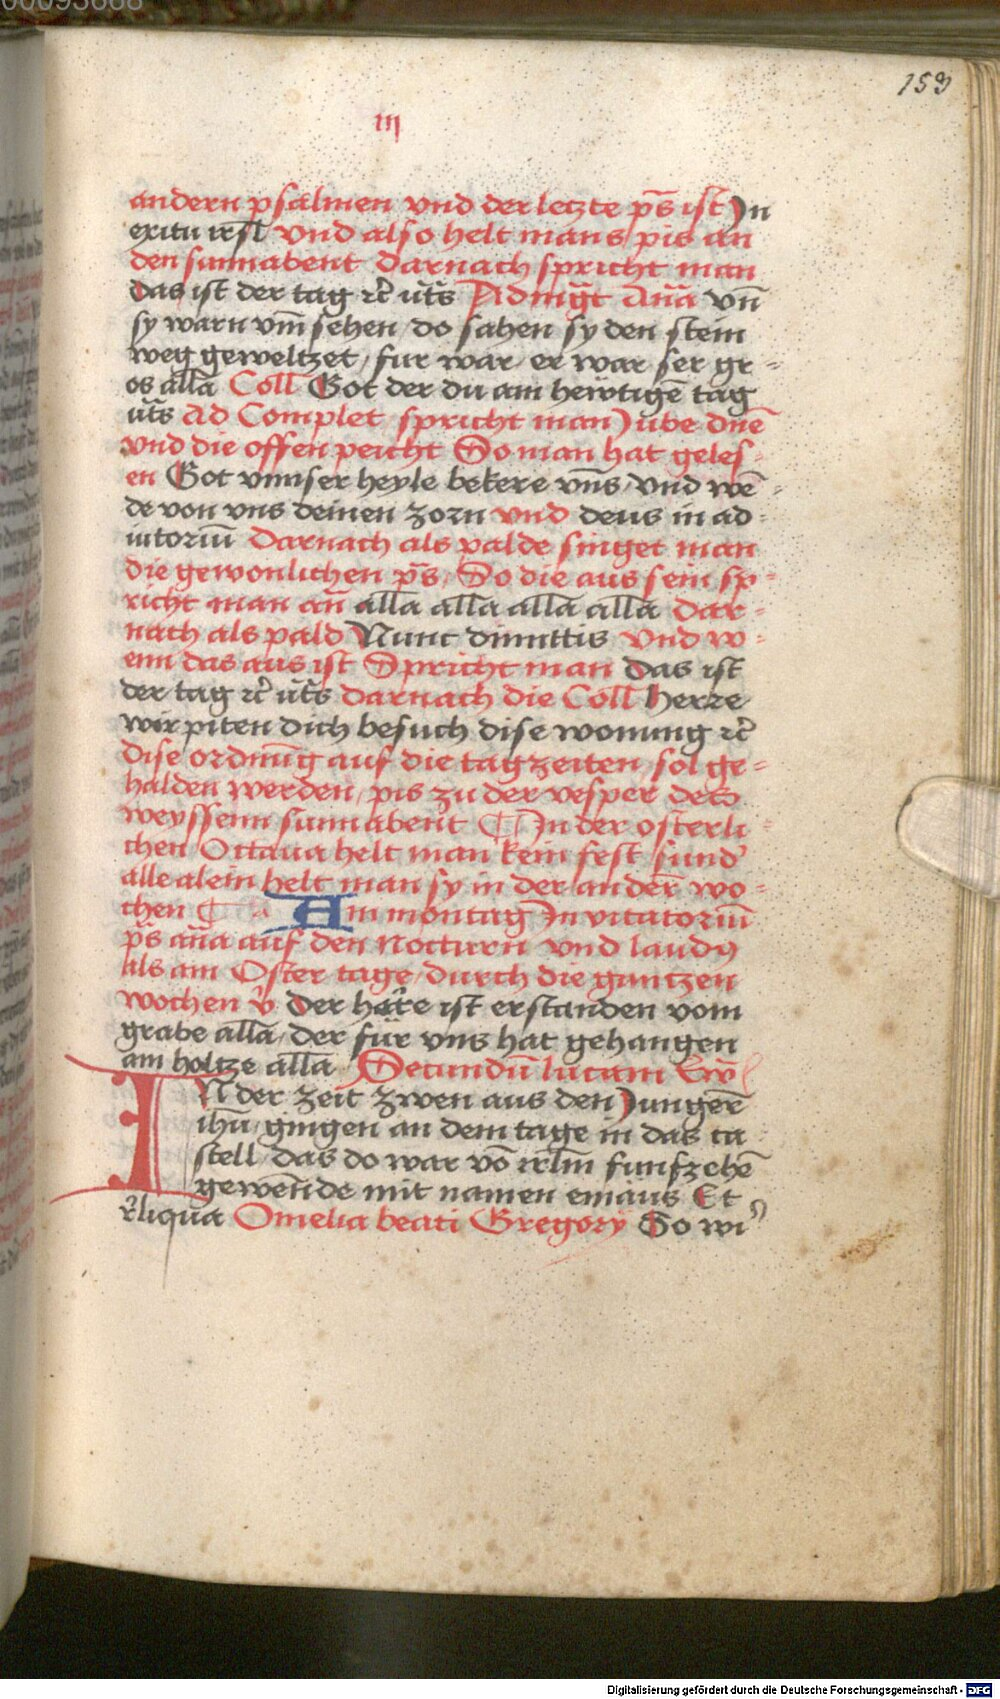 00093668
153
iij
andern psalmen vnd der letzte ps̄ ist In
exitu isrl vnd also helt mans pis an
den sunnabent Darnach spricht man
das ist der tag ꝛc̄ ut̄s Ad mg̅t An̄a vn̄
sy warn vm̄ sehen / do sahen sy den stein
weg geweltzet / fur war / er war ser gr-
os all̄a Coll̄ Got der du am hewtigē tag
ut̄s Ad Complet spricht man Jube dn̄e
vnd die offen peicht So man hat geles-
en Got vnnser heyle bekere vn̄s / vnd wē-
de von vns deinen zorn vnd deus in ad-
iutoriū Darnach als palde singet man
die gewonlichen ps̄ / So die aus sein sp-
richt man an̄ all̄a all̄a all̄a all̄a Dar-
nach als pald Nunc dimittis vnd w-
enn das aus ist Spricht man das ist
der tag ꝛc̄ ut̄s darnach die Coll̄ herre
wir piten dich besuch dise wonung ꝛc̄
Dise ordnūg auf die tagzeiten / sol ge-
halden werden / pis zu der vesper des
weyssenn sunnabent ¶ In der osterli-
chen Octaua helt man kein fest / sund'
alle alein helt man sy in der andern wo-
chen ¶ Am montag Inuitatoriū
ps̄ an̄a auf den Nocturn vnd laudꝰ
als am Oster tage / durch die gantzen
wochen ℣ Der herre ist erstanden vom
grabe all̄a / der für vns hat gehangen
am holtze all̄a Secundū lucam Ew̄
IN der zeit zwen aus den Jungern̄
ihū / gingen an dem tage in das ca
stell / das do war vō irl̄m funfzehē
gewende mit namen emaus Et
rēliqua Omelia beati Gregorÿ So wi
Digitalisierung gefördert durch die Deutsche Forschungsgemeinschaft - DFG